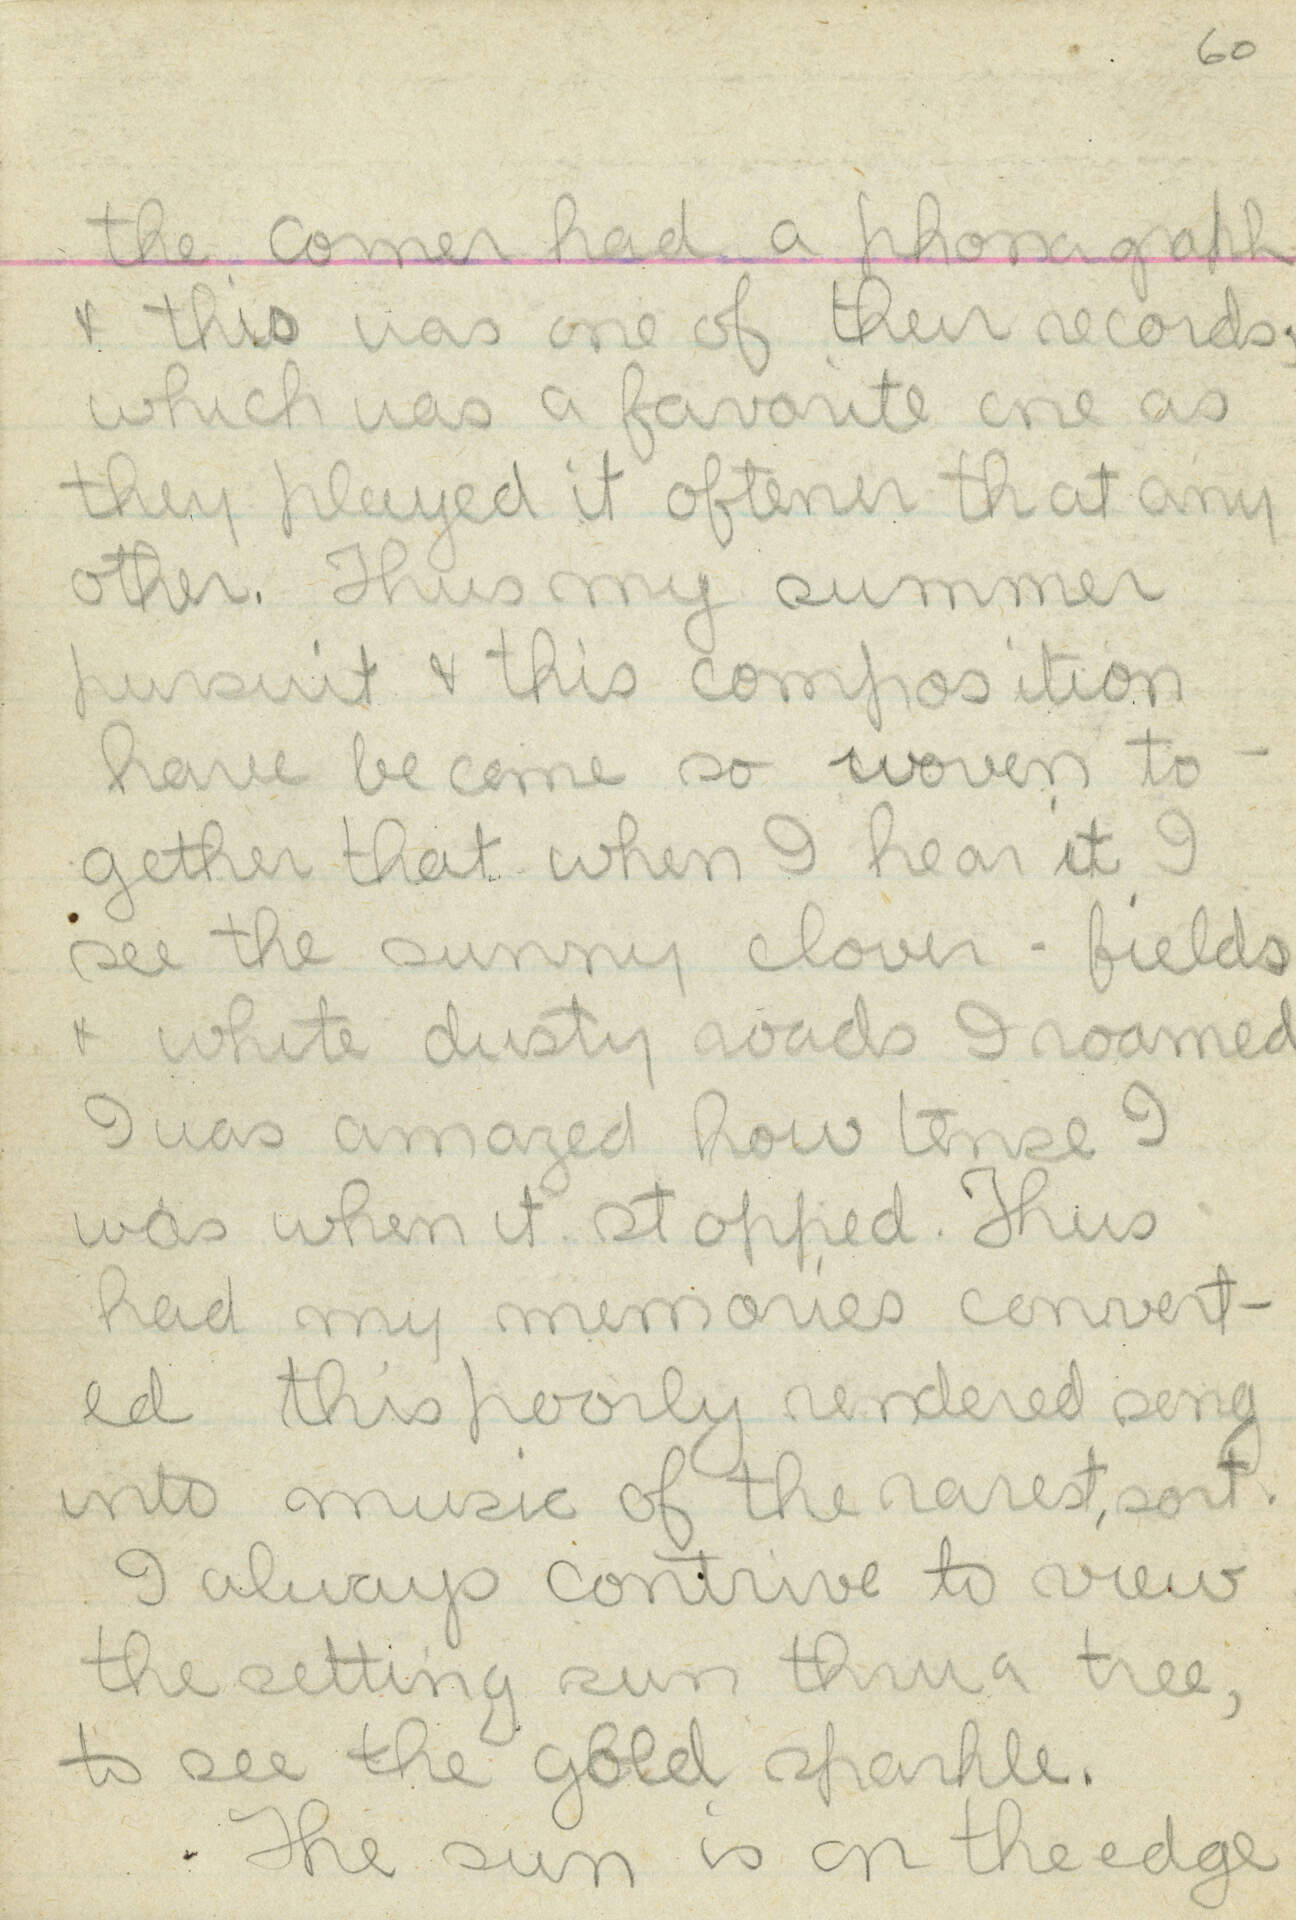 60
the corner had a phonagraph
& this was one of their records;
which was a favorite one as
they played it oftener that any
other. Thus my summer
pursuit & this composition
have become so woven to-
gether that when I hear it I
see the sunny clover - fields
& white dusty roads I roamed
I was amazed how tense I
was when it stopped. Thus
had my memories convert-
ed this poorly rendered song
into music of the rarest, sort.
I always contrive to view
the setting sun thru a tree,
to see the gold sparkle.
The sun is on the edge